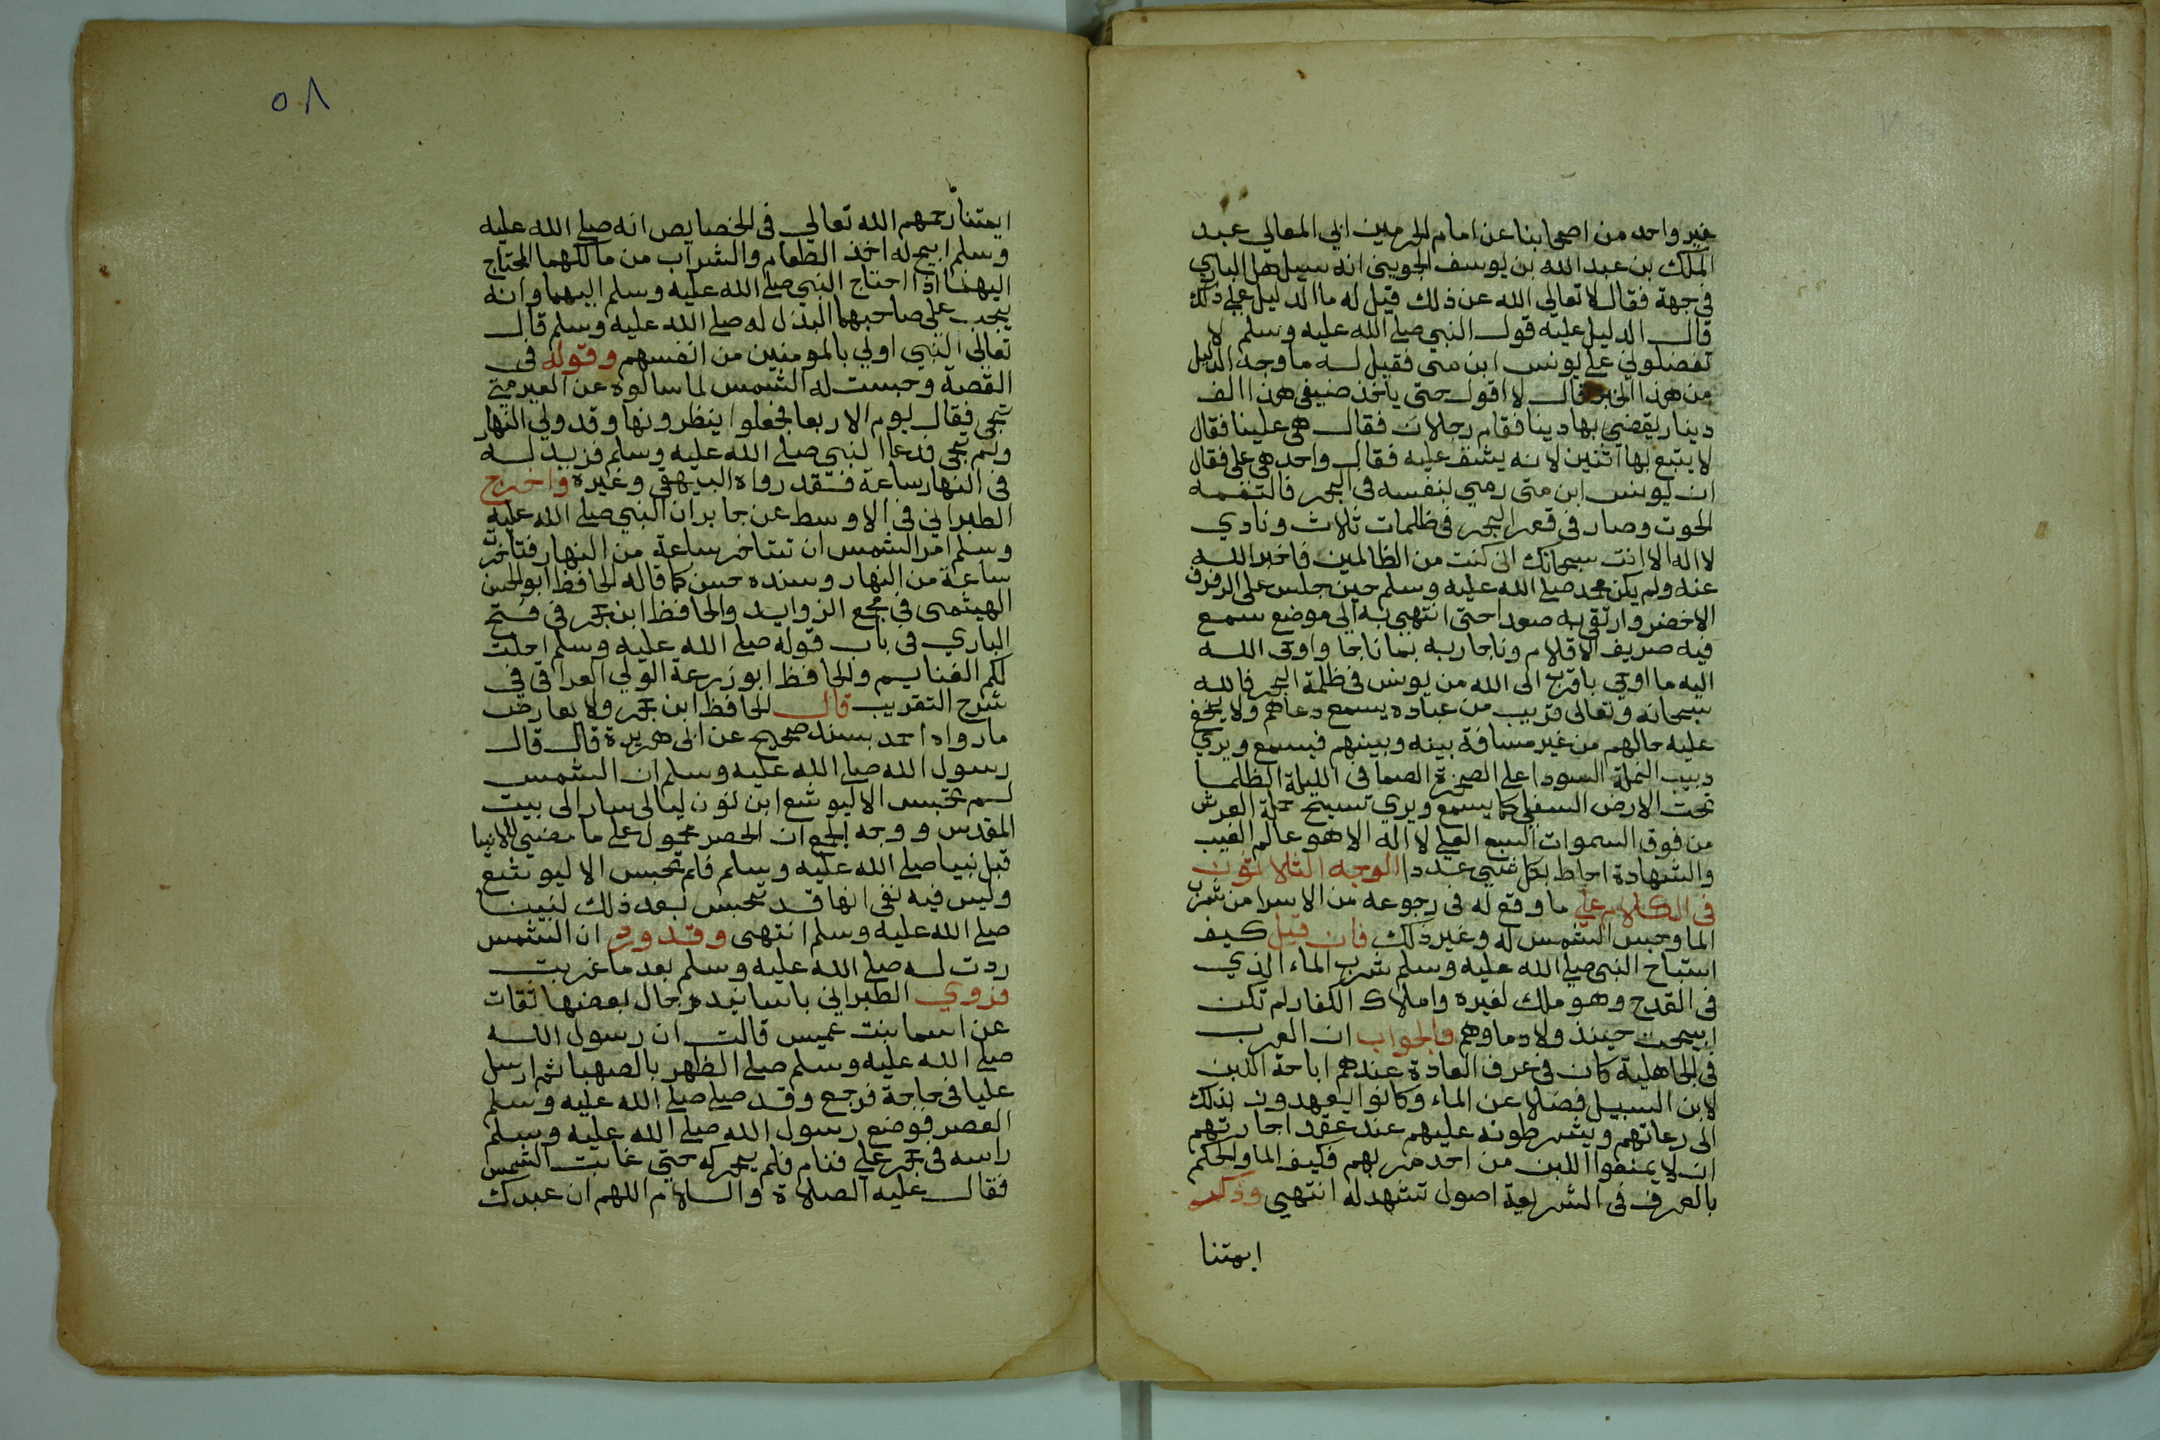 غير واحد من اصحابنا عن امام الحرمين ابي المعالي عبد
الملك بن عبد الله بن يوسف الجويني انه سيل هل الباري
في جهة فقال لا تعالى الله عن ذلك قيل له ما الدليل علي ذلك
قال الدليل عليه قول النبي صلي الله عليه وسلم لا
تفضلوني علي يونس ابن متى فقيل له ما وجه الدليل
من هذا الخبر قال لا اقول حتى ياخذ ضيفي هذا الف
دينار يقضي بها دينا فقام رجلان فقال هي علينا فقال
لا يتبع بها اثنين لانه يشق عليه فقال واحد هي علي فقال
ان يونس ابن متى رمي بنفسه في البحر فالتقمه
الحوت وصار في قعر البحر في ظلمات ثلاث ونادي
لا اله الا انت سبحانك اني كنت من الظالمين فاخبر الله
عنه ولم يكن محمد صلي الله عليه وسلم حين جلس على الرفرف
الاخضر وارتقى به صعدا حتى انتهي به الى موضع سمع
فيه صريف الاقلام وناجا ربه بما ناجا واوحى الله
اليه ما اوحي باقرب الى الله من يونس في ظلمة البحر فالله
سبحانه وتعالى قريب من عباده يسمع دعاهم ولا يخفى
عليه حالهم من غير مسافة بينه وبينهم فيسمع ويري
دبيب النملة السودا على الصخرة الصما في الليلة الظلما
تحت الارض السفلي كما يسمع ويري تسبيح حملة العرش
من فوق السموات السبع العلي لا اله الا هو عالم الغيب
والشهادة احاط بكل شيي عددا الوجه الثلاثون
في الكلام علي ما وقع له في رجوعه من الاسرا من شرب
الما وحبس الشمس له وغير ذلك فان قيل كيف
استباح النبي صلي الله عليه وسلم شرب الماء الذي
في القدح وهو ملك لغيره واملاك الكفار لم تكن
ابيحت حينذ ولا دماوهم والجواب ان العرب
في الجاهلية كان في عرف العادة عندهم اباحة اللبن
لابن السبيل فضلا عن الماء وكانوا يعهدون بذلك
الى رعاتهم ويشرطونه عليهم عند عقد اجارتهم
ان لا يمنعوا اللبن من احد مر بهم فكيف الما والحكم
بالعرف في الشريعة اصول تشهد له انتهي وذكر
ايمتنا
٥٨
ايمتنا رحمهم الله تعالي في الخصايص انه صلي الله عليه
وسلم ابيح له اخذ الطعام والشراب من مالكهما المحتاج
اليهما اذا احتاج النبي صلي الله عليه وسلم اليهما وانه
يجب على صاحبهما البذل له صلي الله عليه وسلم قال
تعالي النبي اولي بالمومنين من انفسهم وقوله في
القصة وحبست له الشمس لما سالوه عن العير متى
تجي فقال يوم الاربعا فجعلوا ينظرونها وقد ولي النهار
ولم تجي فدعا النبي صلي الله عليه وسلم فزيد له
في النهار ساعة فقد رواه البيهقي وغيره واخرج
الطبراني في الاوسط عن جابر ان النبي صلي الله عليه
وسلم امر الشمس ان تتاخر ساعة من النهار فتاخرت
ساعة من النهار وسنده حسن كما قاله الحافظ ابو الحسن
الهيثمى في مجمع الزوايد والحافظ ابن حجر في فتح
الباري في باب قوله صلي الله عليه وسلم احلت
لكم الغنايم والحافظ ابو زرعة الولي العراقي في
شرح التقريب قال الحافظ ابن حجر ولا يعارض
ما رواه احمد بسند صحيح عن ابى هريرة قال قال
رسول الله صلي الله عليه وسلم ان الشمس
لم تحبس الا ليوشع ابن نون ليالي سار الى بيت
المقدس ووجه الجمع ان الحصر محمول علي ما مضي للانبيا
قبل نبينا صلي الله عليه وسلم فلم تحبس الا ليوشع
وليس فيه نفى انها قد تحبس بعد ذلك لنبينا
صلي الله عليه وسلم انتهى وقد ورد ان الشمس
ردت له صلي الله عليه وسلم بعد ما غربت
فروي الطبراني باسانيد رجال بعضها ثقات
عن اسما بنت عميس قالت ان رسول الله
صلي الله عليه وسلم صلي الظهر بالصهبا ثم ارسل
عليا في حاجة فرجع وقد صلي صلي الله عليه وسلم
العصر فوضع رسول الله صلي الله عليه وسلم
راسه في حجر علي فنام فلم يحركه حتي غابت الشمس
فقال عليه الصلاة والسلام اللهم ان عبدك